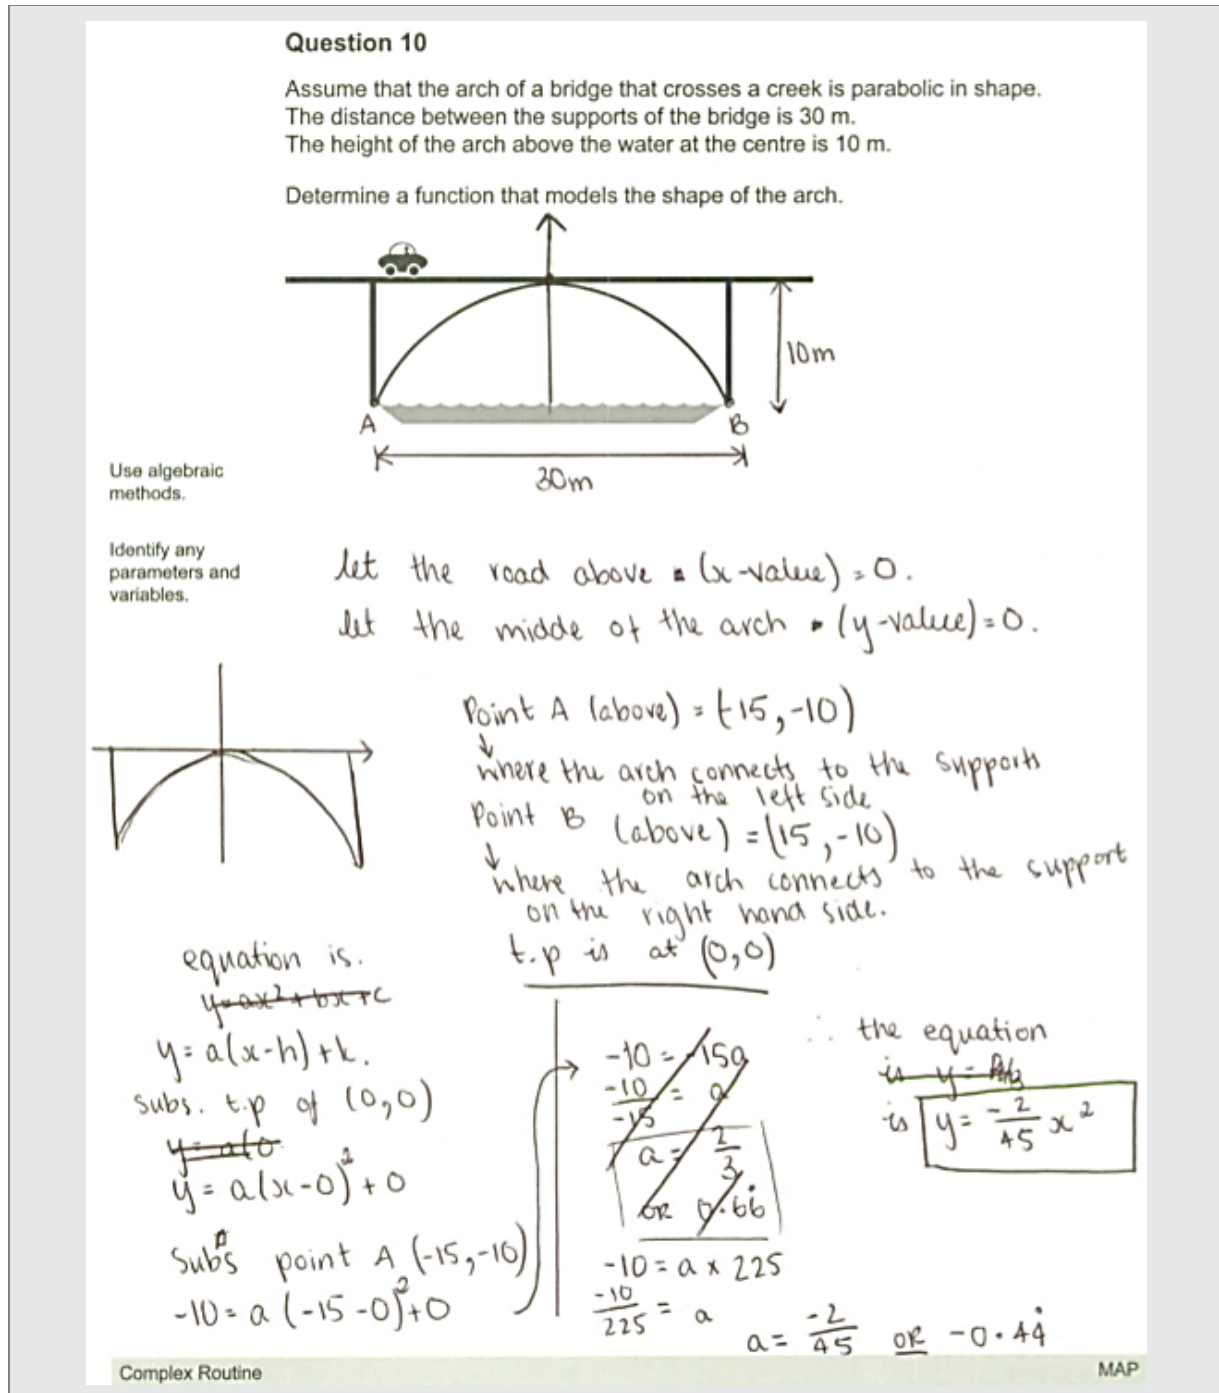 Question 10
Assume that the arch of a bridge that crosses a creek is parabolic in shape.
The distance between the supports of the bridge is 30 m.
The height of the arch above the water at the centre is 10 m.
Determine a function that models the shape of the arch.
10m
A
B
30m
Use algebraic
methods.
Identify any
parameters and
variables.
let the road above (x-value) = 0.
let the midde of the arch (y-value) = 0.
Point A (above) = (-15, -10)
↓
where the arch connects to the supports
on the left side
Point B (above) = (15, -10)
↓
where the arch connects to the support
on the right hand side.
t.p is at (0,0)
equation is.
y=ax²+bx+c
y = a(x-h)+k.
subs. t.p of (0,0)
y = a(0
y = a(x-0)²+0
Subs point A (-15,-10)
-10 = a (-15 -0)²+0
-10 = -15a
-10/-15 = a
a = 2/3
OR 0.66̇
-10 = a x 225
-10/225 = a
a = -2/45 OR -0.44̇
∴ the equation
is y =
is y = -2/45 x²
Complex Routine
MAP